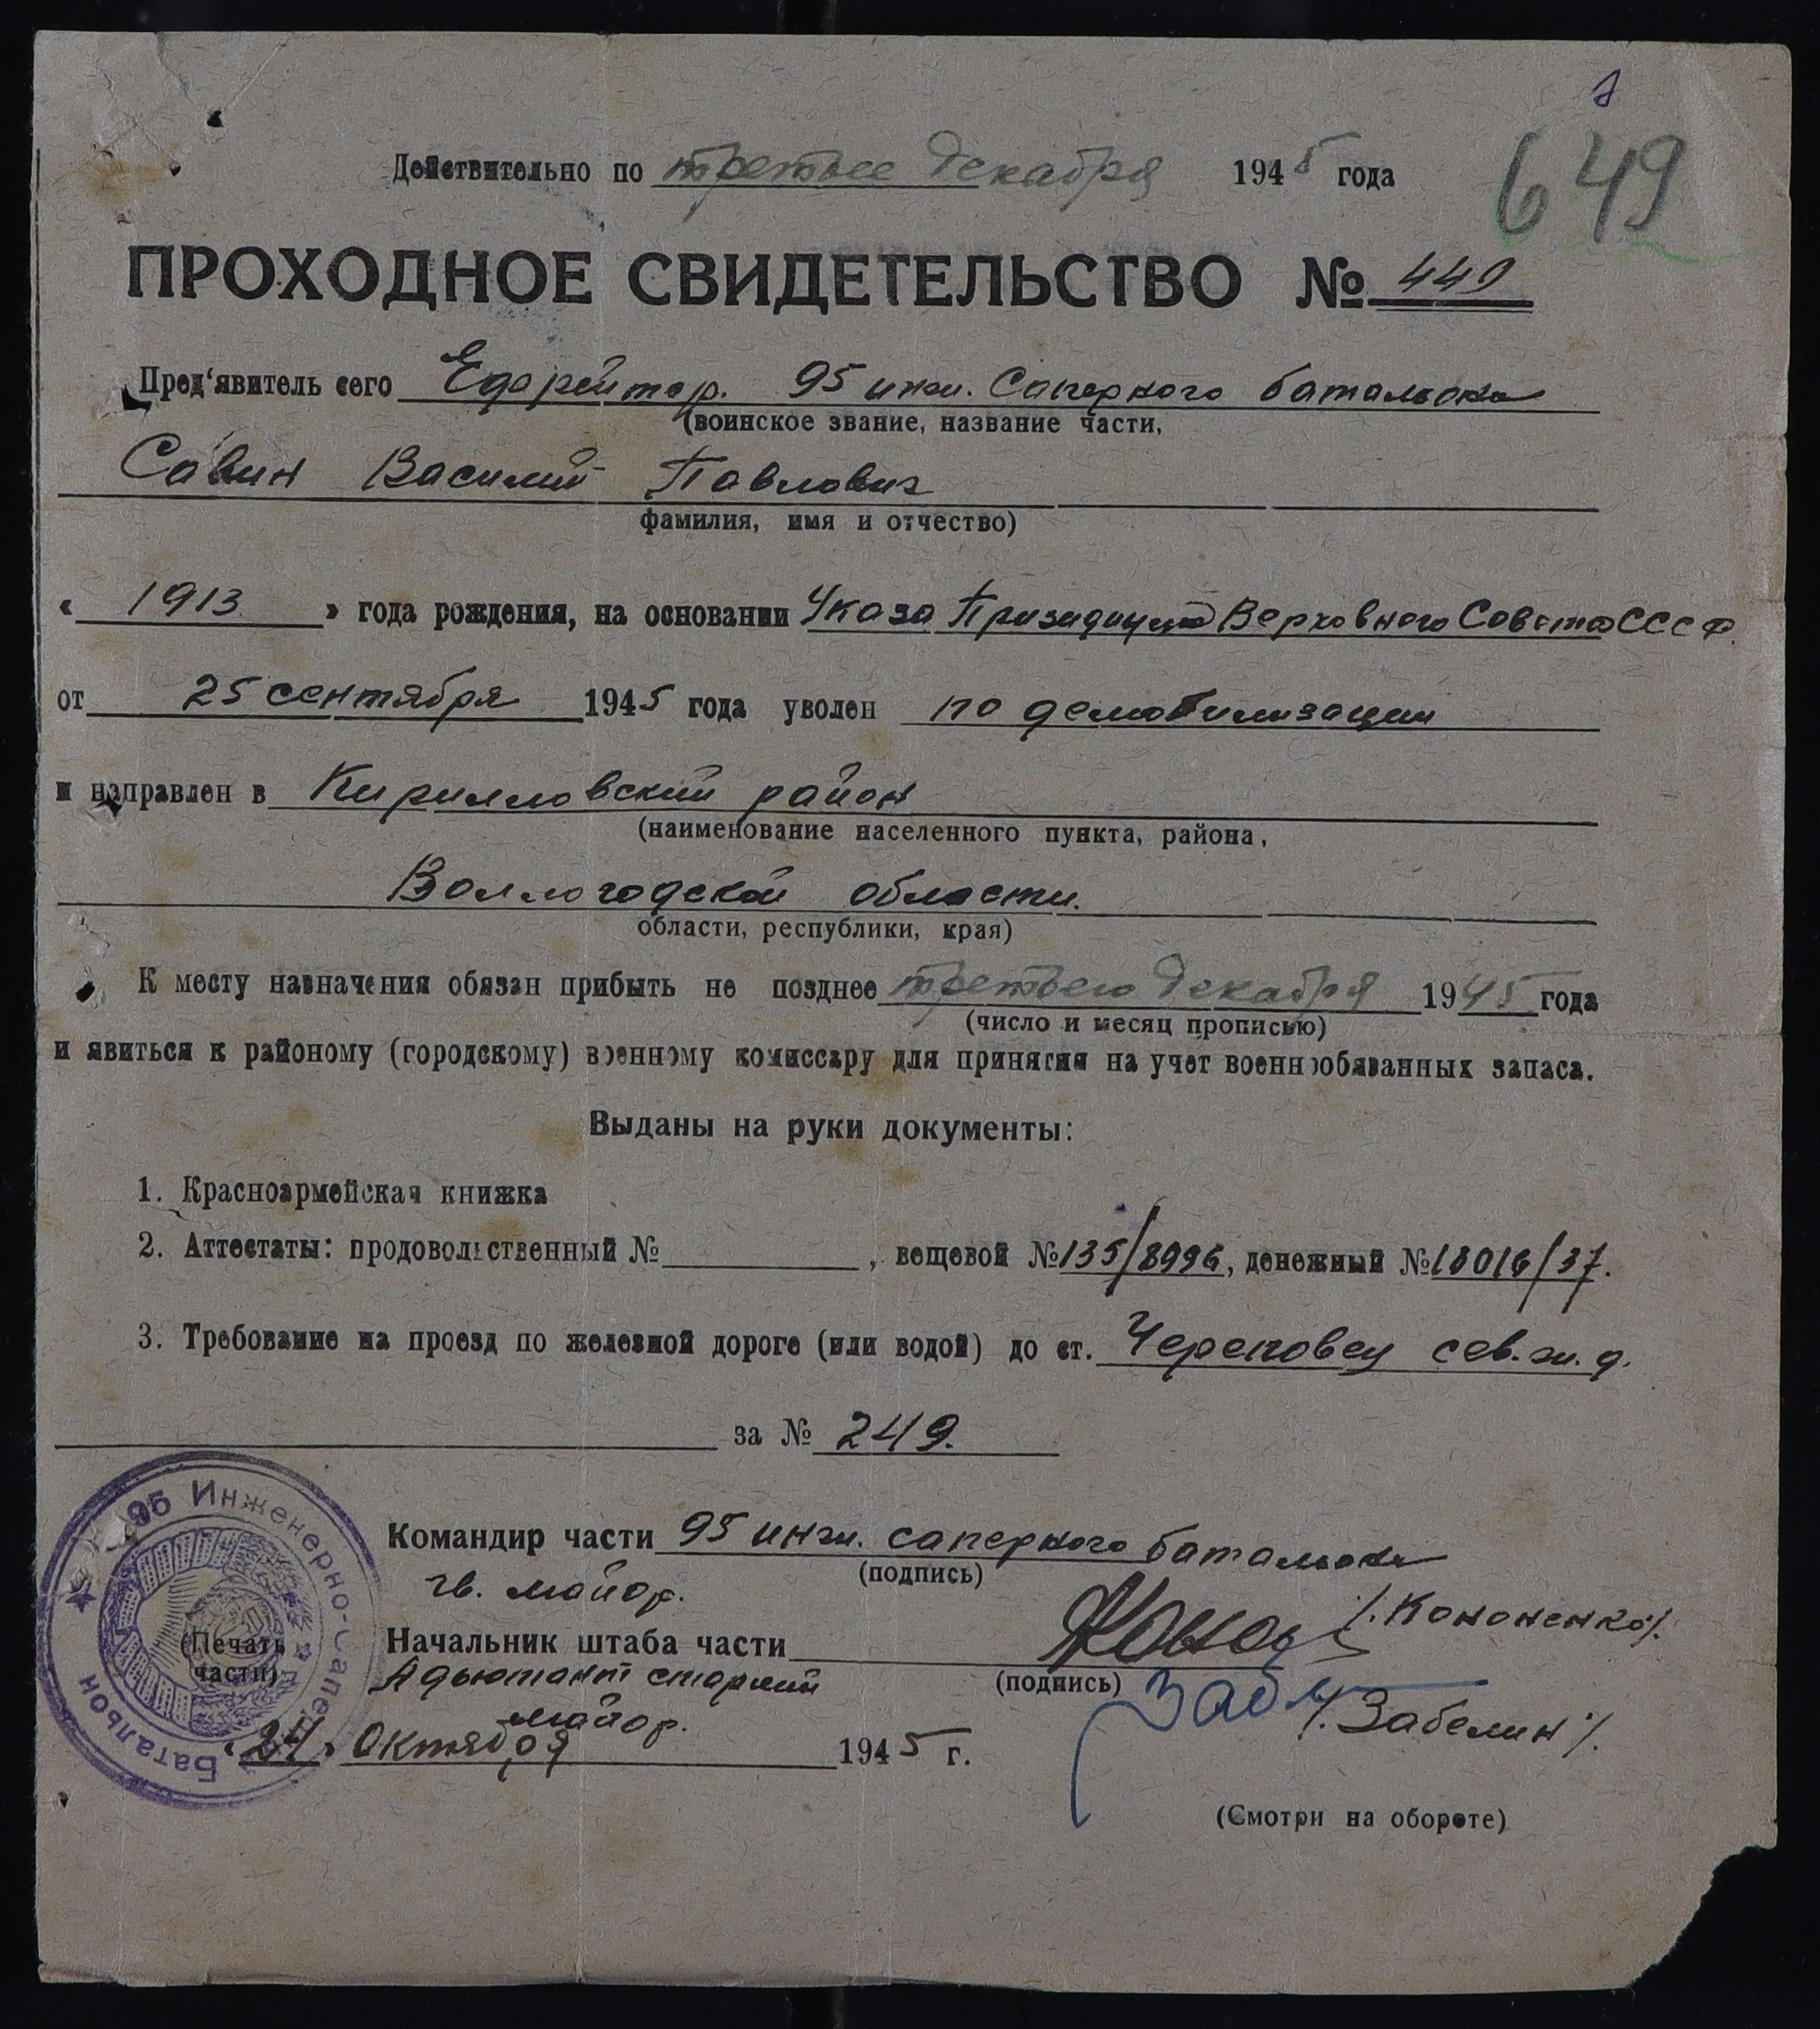 649
Действительно по третье декабря 1945 года
ПРОХОДНОЕ СВИДЕТЕЛЬСТВО № 449
Пред'явитель сего Ефрейтор. 95 инж. Саперного батальона
(воинское звание, название части,
Савин Василий Павлович
фамилия, имя и отчество)
« 1913 » года рождения, на основании Указа Призидиума Верховного Совета СССР.
от 25 сентября 1945 года уволен по демобилизации
и направлен в Кирилловский район
(наименование населенного пункта, района,
Воллогодской области.
области, республики, края)
К месту назначения обязан прибыть не позднее третьего декабря 1945 года
(число и месяц прописью)
и явиться к районому (городскому) военному комиссару для принятия на учет военнообязанных запаса.
Выданы на руки документы:
1. Красноармейская книжка
2. Аттестаты: продовольственный № , вещевой № 135/8996, денежный № 18016/37.
3. Требование на проезд по железной дороге (или водой) до ст. Череповец сев. ж. д.
за № 249.
Командир части 95 инж. саперного батальона
(подпись)
гв. майор. /. Кононенко/.
Начальник штаба части
(подпись)
Адьютант старший
майор. /. Забелин/.
(Печать части)
95 Инженерно-Сапер Батальон
«24» Октября 1945 г.
(Смотри на обороте)